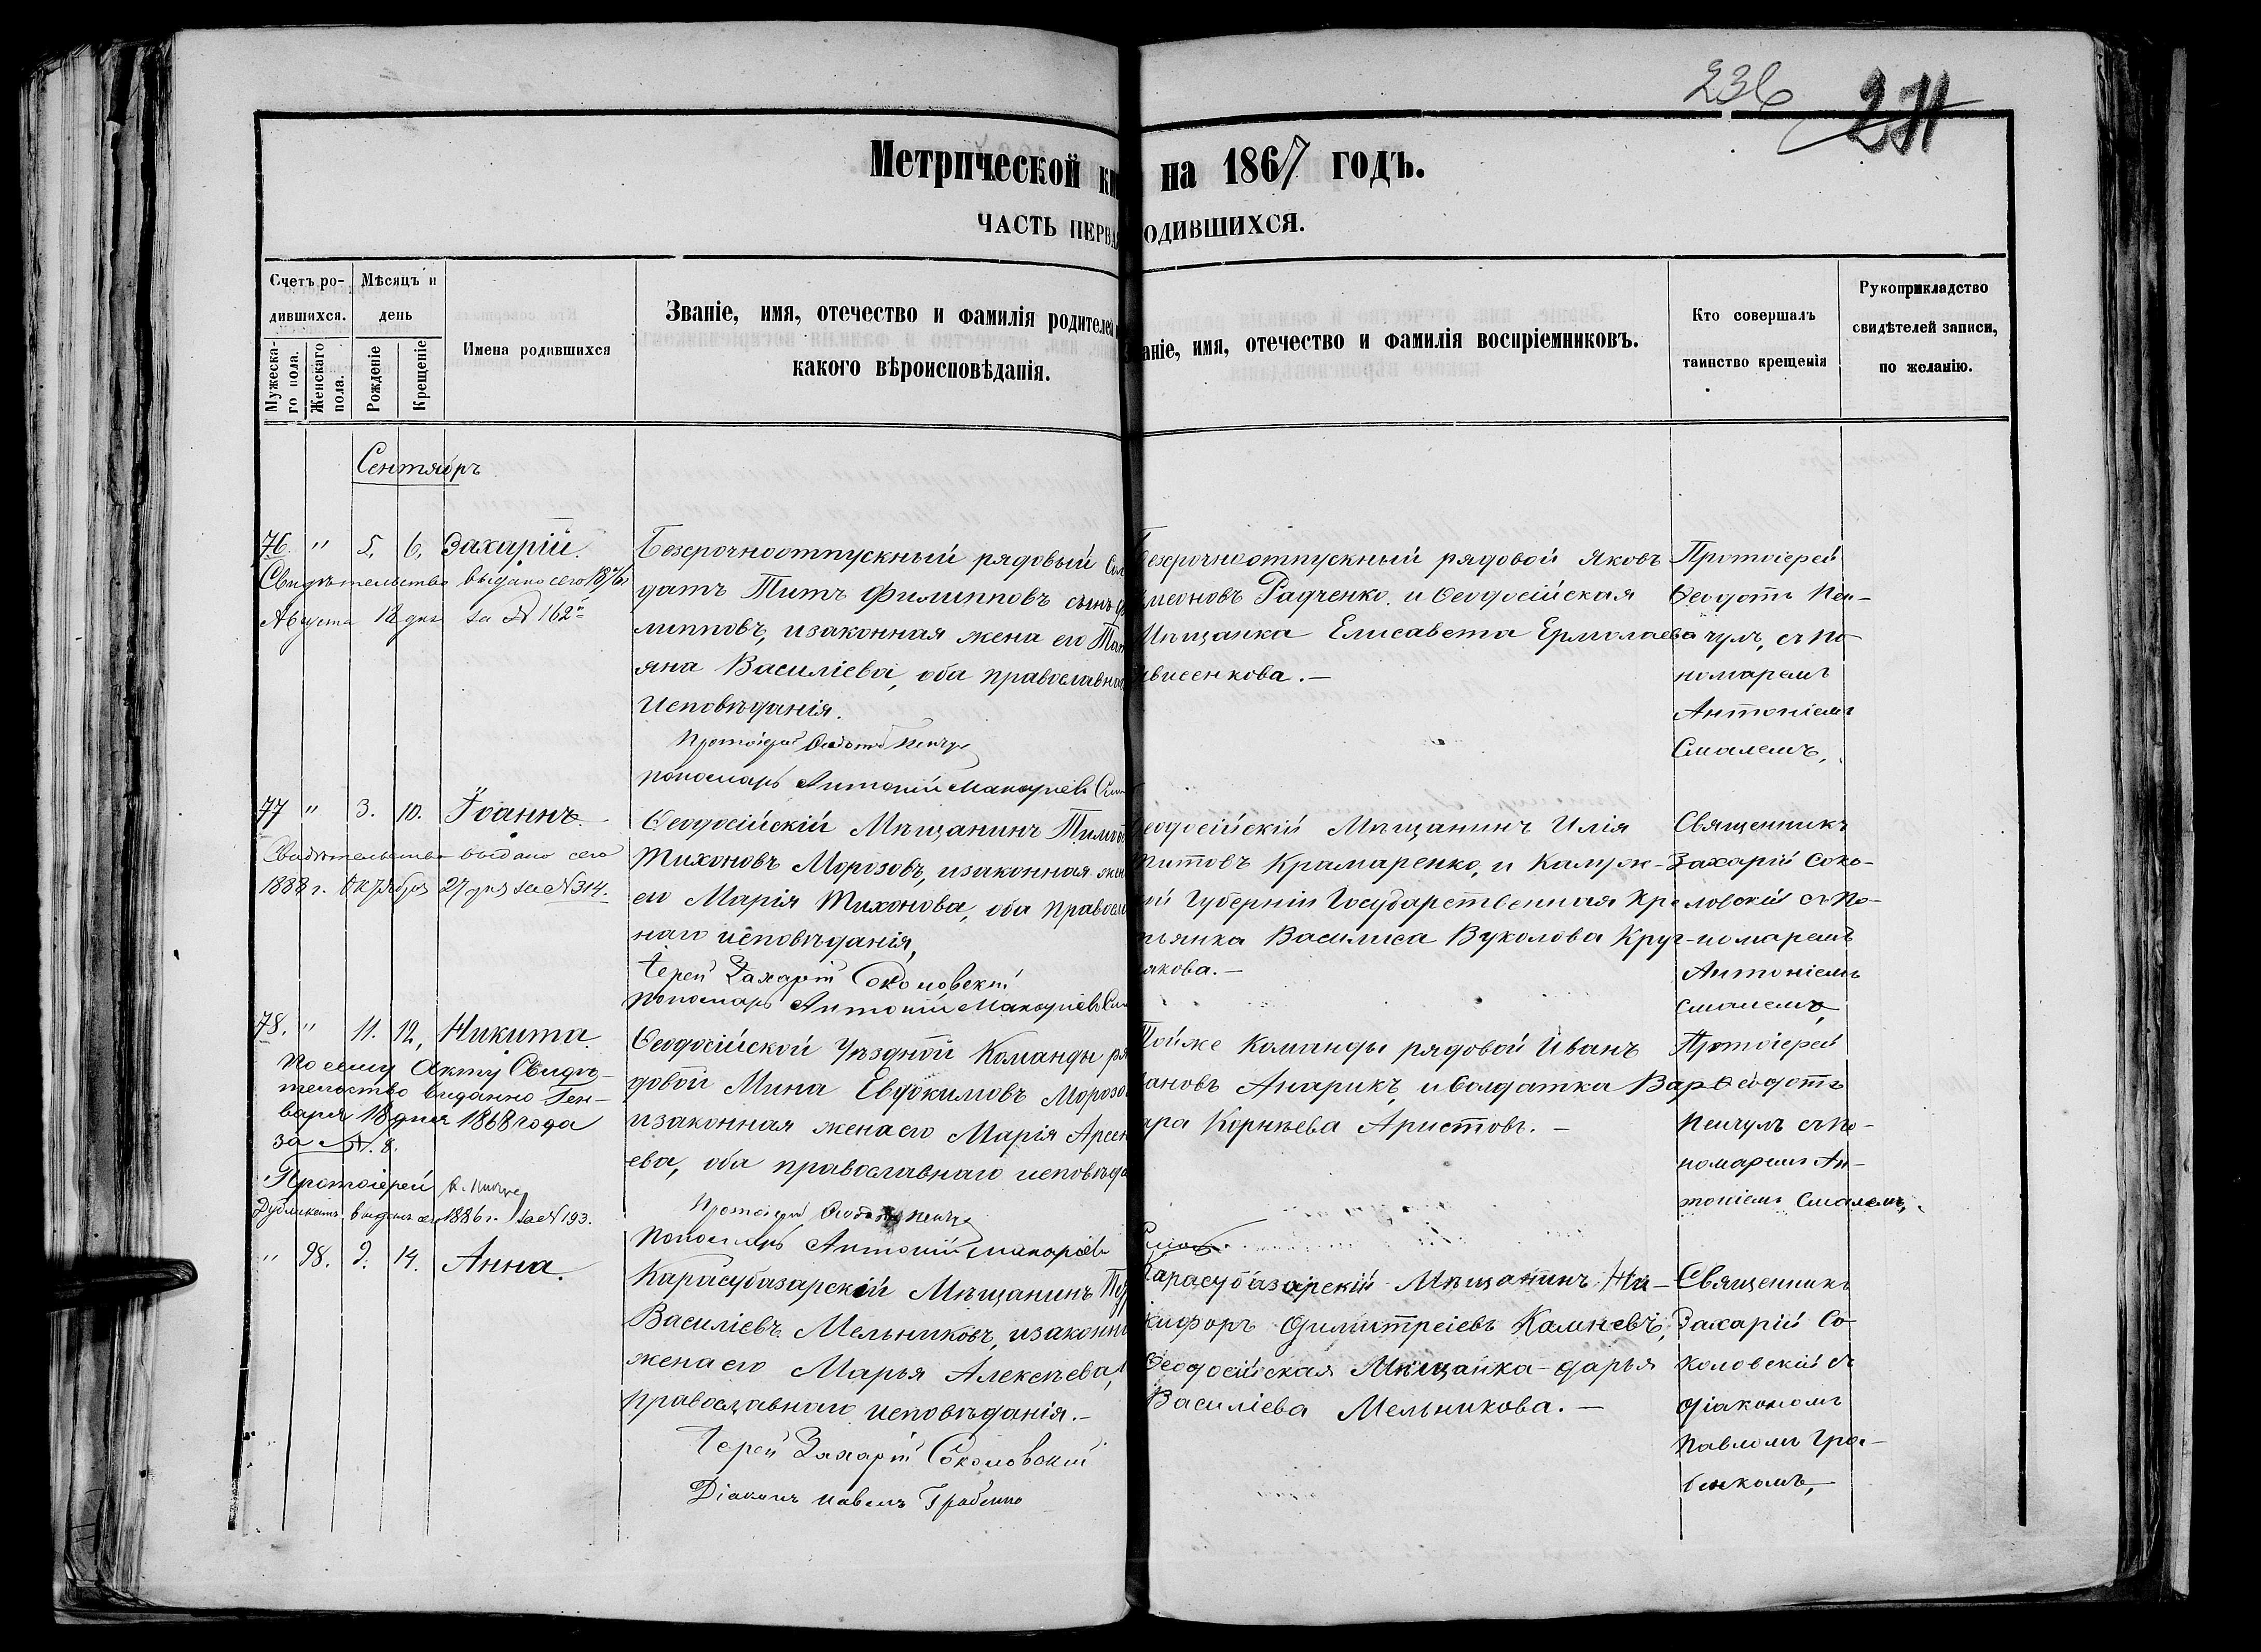 236
271
Метрической кн на 1867 годъ.
ЧАСТЬ ПЕРВА ОДИВШИХСЯ.
Счетъ ро-
дившихся.
Мужеска-
го пола.
Женскаго
пола.
Мѣсяцъ и
день
Рожденіе
Крещеніе
Имена родившихся
Званіе, имя, отечество и фамилія родителей
какого вѣроисповѣданія.
аніе, имя, отечество и фамилія воспріемниковъ.
Кто совершалъ
таинство крещенія
Рукоприкладство
свидѣтелей записи,
по желанію.
Сентябрь
76. " 5. 6. Захарій.
Свидѣтельство выдано сего
Августа 18 дня за № 162
Безсрочноотпускный рядовый Сол
датъ Титъ Филипповъ сынъ Фи
липповъ, изаконная жена его Тат
яна Василіева, оба православнаго
Исповѣданія.
Протоіерей Ѳеодотъ Пенчулъ
пономарь Антоній Макаріевъ
Безсрочноотпускный рядовой Яковъ
Радченко. и Ѳеодосійская
Мѣщанка Елисавета Ермолаева
Протоіерей
Ѳеодотъ Пен-
чулъ, съ по-
номаремъ
Антоніемъ
Смалемъ,
77 " 3. 10. Іоаннъ.
Свидѣтельство выдано сего
1888 г. Октября 27 дня за № 314.
Ѳеодосійскій Мѣщанинъ Тимоѳ
Тихоновъ Морозовъ, изаконная жен
его Марія Тихонова, оба Правосл
наго исповѣданія,
Іерей Захарій Соколовскій
пономарь Антоній Макаріевъ
еодосійскій Мѣщанинъ Илія
Титовъ Крамаренко, и Калуж-
ой Губерніи Государственная Кре
тьянка Василиса Вуколова Круг-
лякова.—
Священникъ
Захарій Соко-
ловскій съ По-
номаремъ
Антоніемъ
Смалемъ,
78. " 11. 12, Никита.
По сему Акту Свидѣ-
тельство выданно Ген-
варя 18 дня 1868 года
за № 8.
Протоіерей
Дубликатъ выданъ 1886 г. за № 193.
Ѳеодосійской Уѣздной Команды ря
довой Мина Евдокимовъ Морозо
изаконная жена его Марія Арсен
ева, оба православнаго исповѣда
Протоіерей Ѳеодотъ Пенчулъ
Пономарь Антоній Макаріевъ
Тойже Команды рядовой Иванъ
ановъ Анарикъ, и Солдатка Вар-
ара Корнѣева Аристовъ.—
Протоіерей
Ѳеодотъ
Пенчулъ съ По-
номаремъ Ан-
тоніемъ Смалемъ,
" 98. 9. 14. Анна.
Карасубазарскій Мѣщанинъ
Василіевъ Мельниковъ, изаконна
жена его Марья Алексѣева,
православнаго исповѣданія.—
Іерей Захарій Соколовскій
Діаконъ Павелъ Грабенко
Карасубазарскій Мѣщанинъ Ни-
кифоръ Димитреіевъ Калиневъ,
Ѳеодосійская Мѣщанка Дарья
Василіева Мельникова.—
Священникъ
Захарій Со-
коловскій съ
Діакономъ
Павломъ Гра-
бенкомъ,